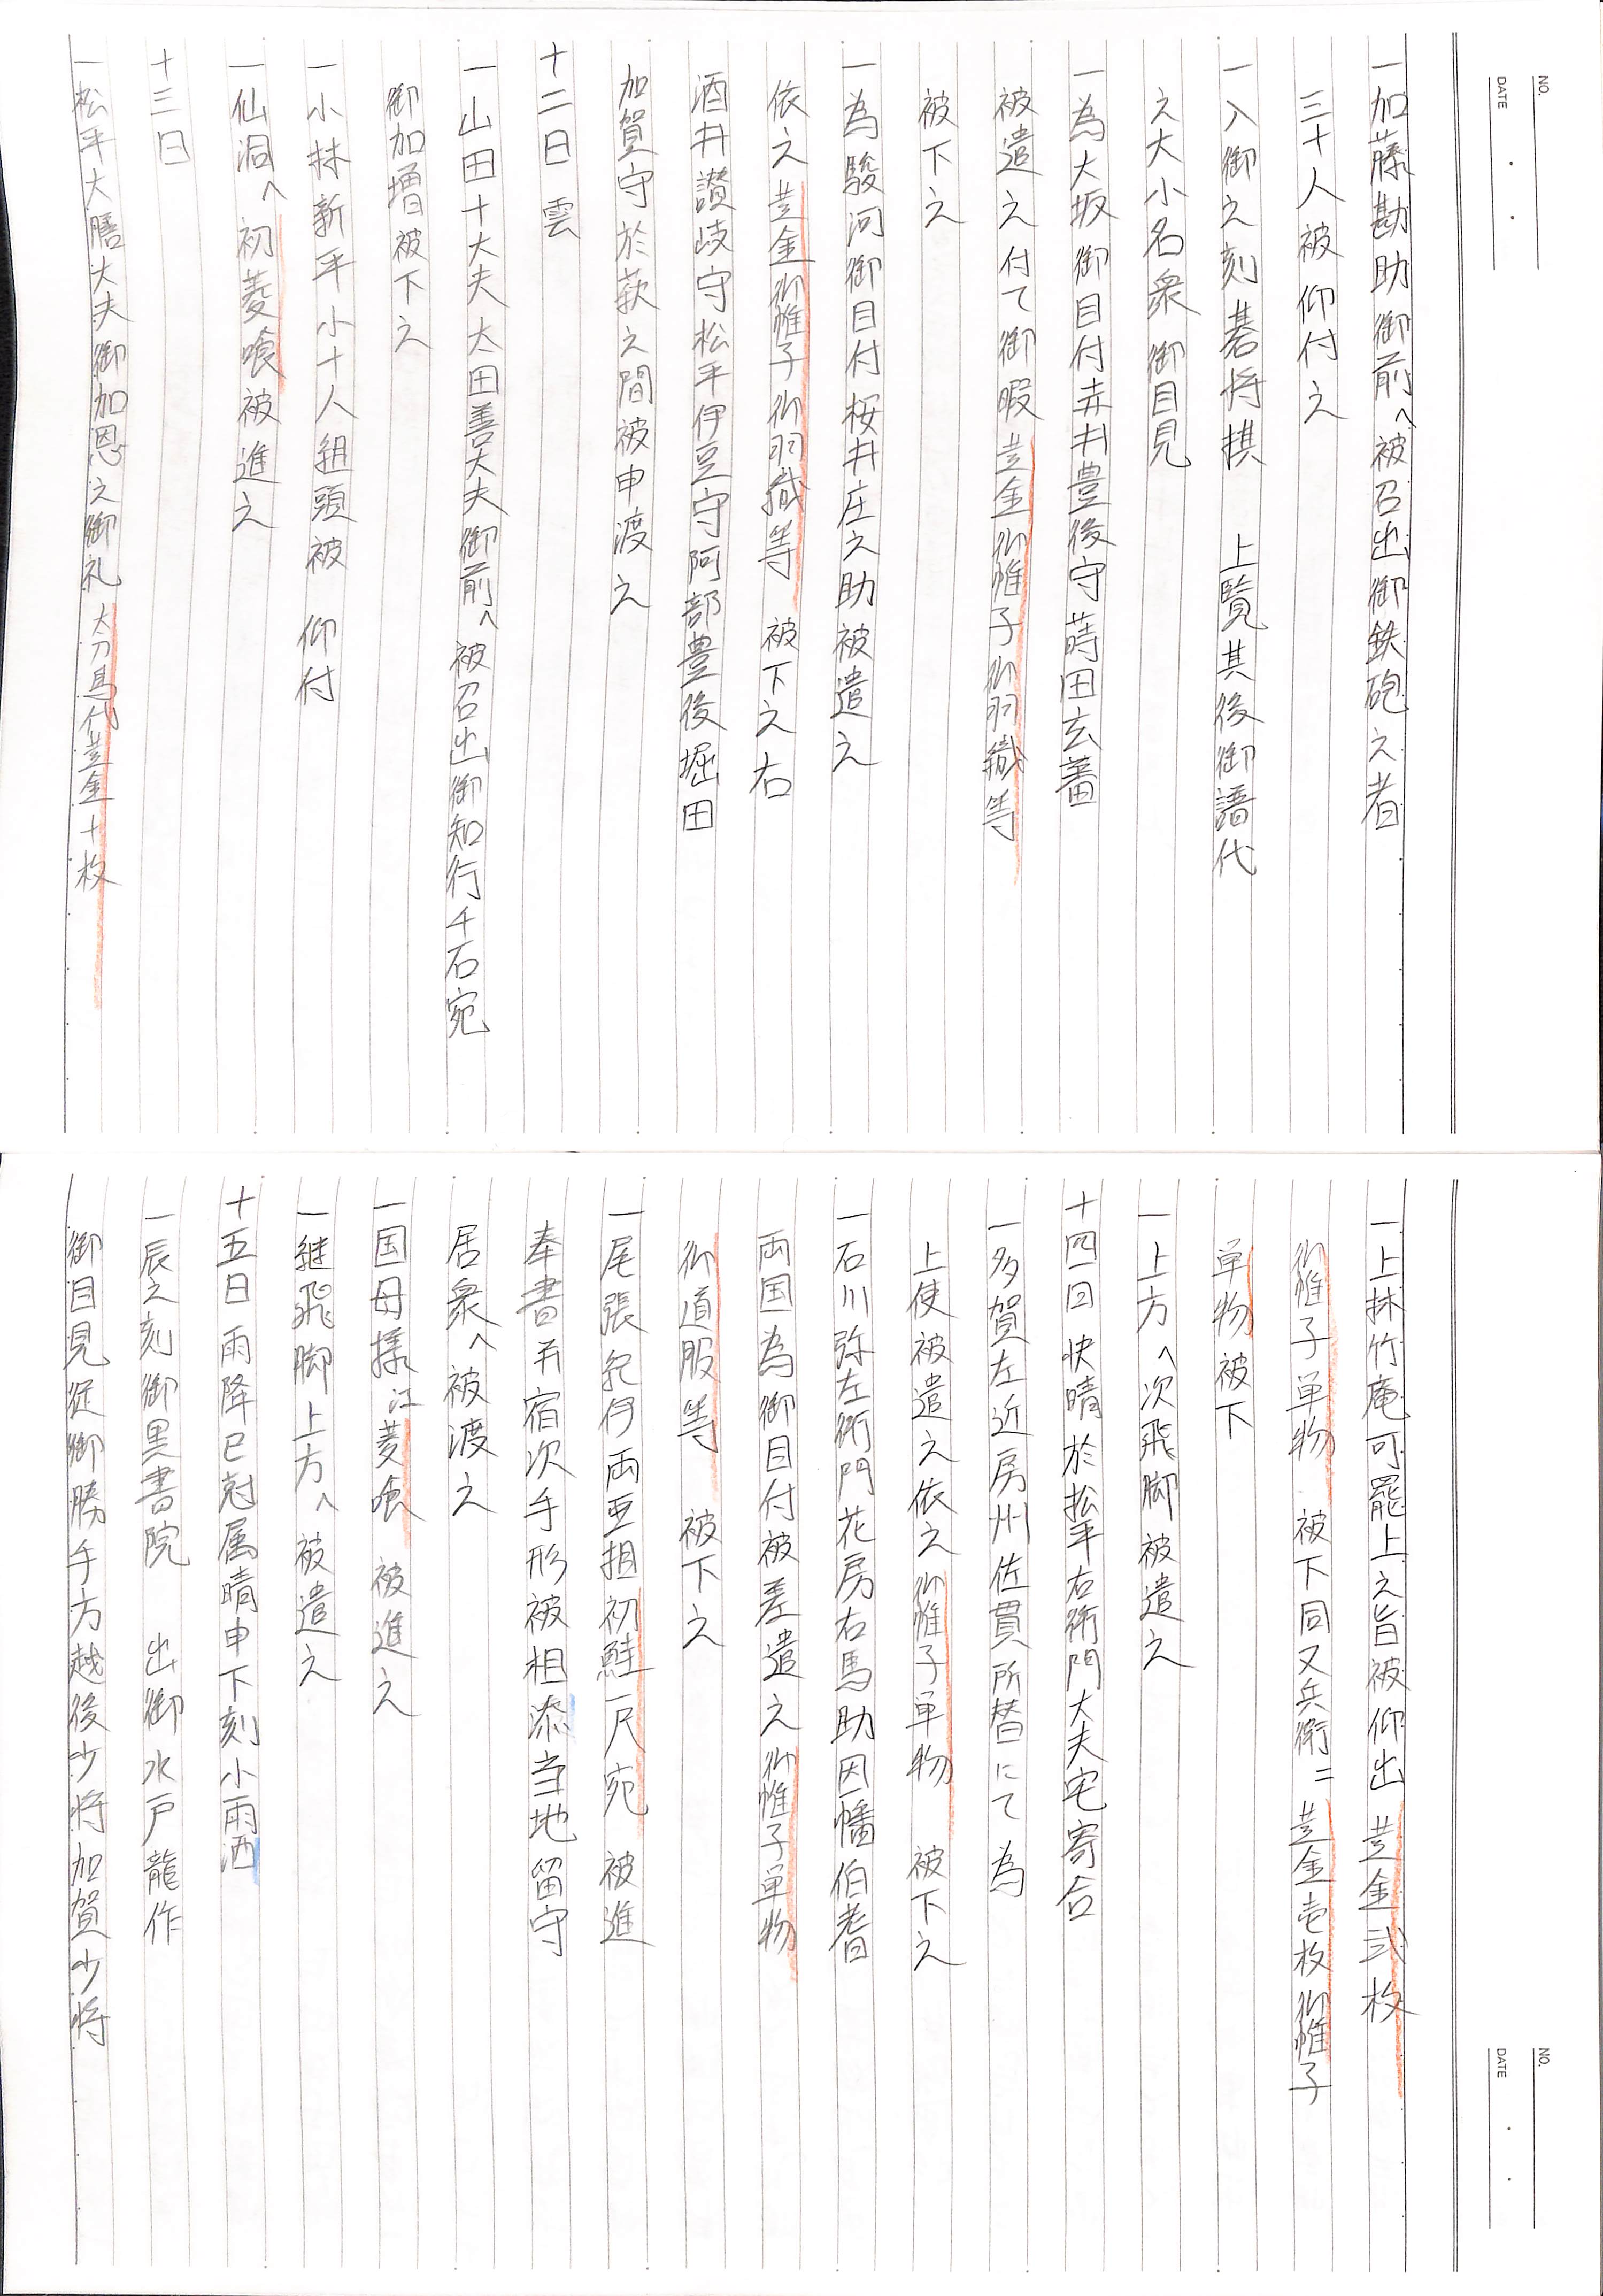 NO.
DATE
一加藤勘助御前へ被召出御鉄砲之者
三十人被仰付之
一入御之刻碁将棋 上覧其後御譜代
之大小名衆御目見
一為大坂御目付赤井豊後守蒔田玄蕃
被遣之付て御暇黄金御帷子御羽織等
被下之
一為駿河御目付桜井庄之助被遣之
依之黄金御帷子御羽織等 被下之右
酒井讃岐守松平伊豆守阿部豊後堀田
加賀守於萩之間被申渡之
十二日 雲
一山田十大夫太田善大夫御前へ被召出御知行千石宛
御加増被下之
一小林新平小十人組頭被 仰付
一仙洞へ初菱喰被進之
十三日
一松平大膳大夫御加恩之御礼太刀馬代黄金十枚
NO.
DATE
一上林竹庵可罷上之旨被仰出 黄金弐枚
御帷子単物 被下同又兵衛ニ黄金壱枚御帷子
単物被下
一上方へ次飛脚被遣之
十四日 快晴於松平右衛門大夫宅寄合
一多賀左近房州佐貫所替にて為
上使被遣之依之御帷子単物 被下之
一石川弥左衛門花房右馬助因幡伯耆
両国為御目付被差遣之御帷子単物
御道服等 被下之
一尾張紀伊両亜相初鮭一尺宛 被進
奉書并宿次手形被相添当地留守
居衆へ被渡之
一国母様江菱喰 被進之
一継飛脚上方へ被遣之
十五日雨降巳尅属晴申下刻小雨洒
一辰之刻御黒書院 出御水戸龍作
御目見従御勝手方越後少将加賀少将